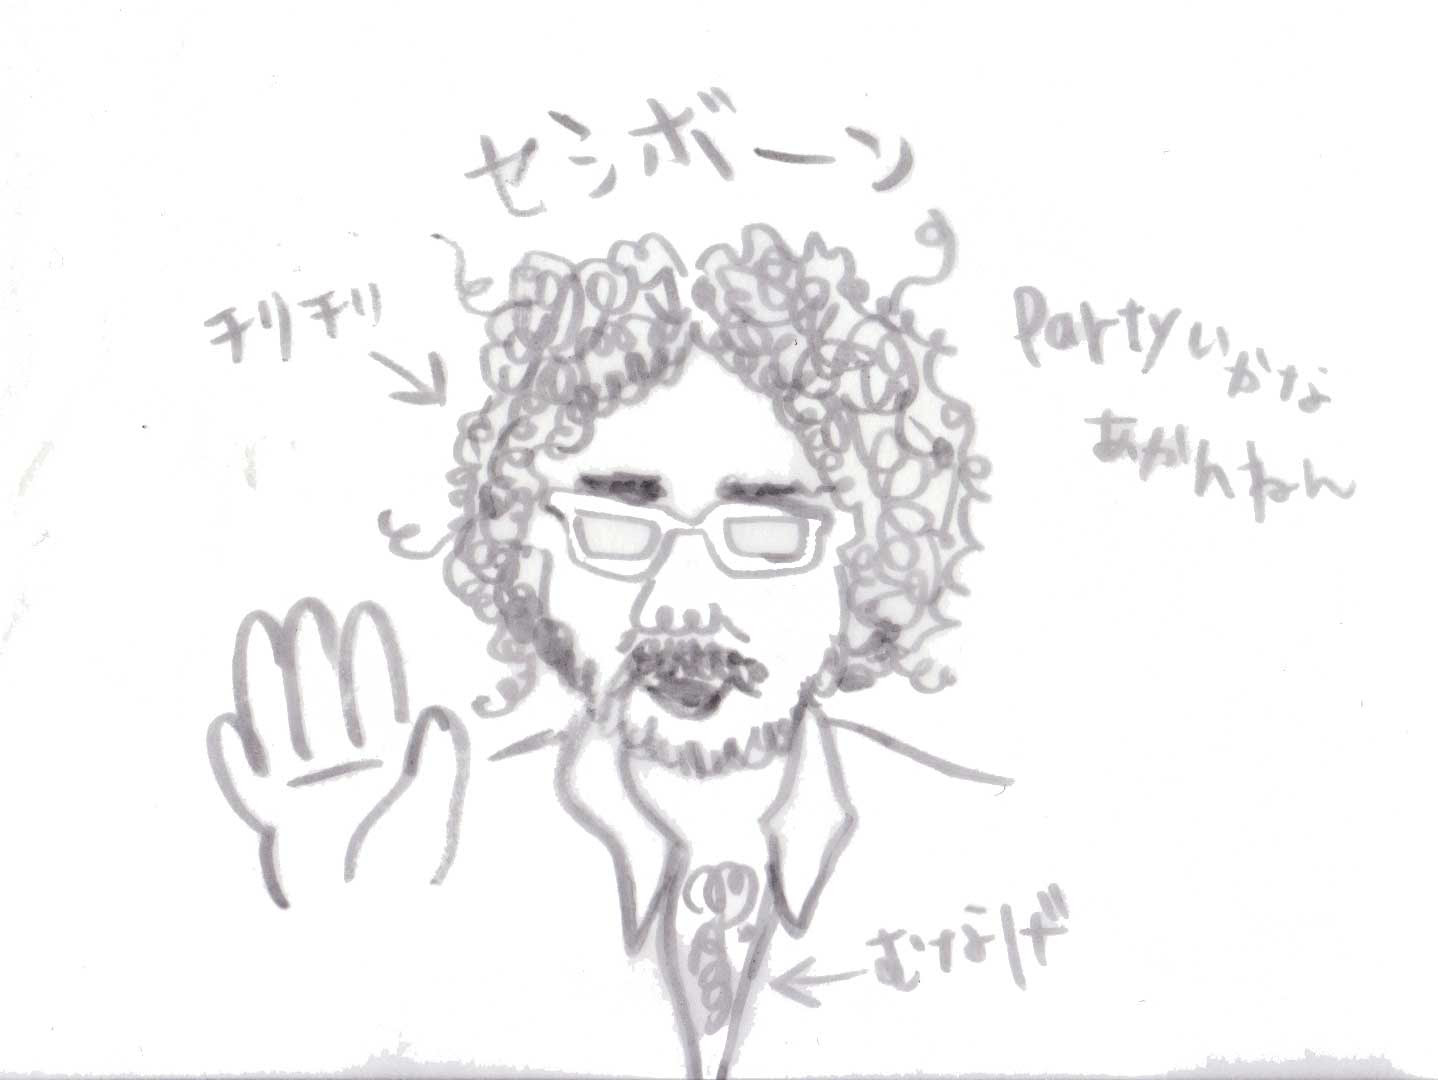 センボーン
チリチリ
Partyいかな
あかんねん
むなげ